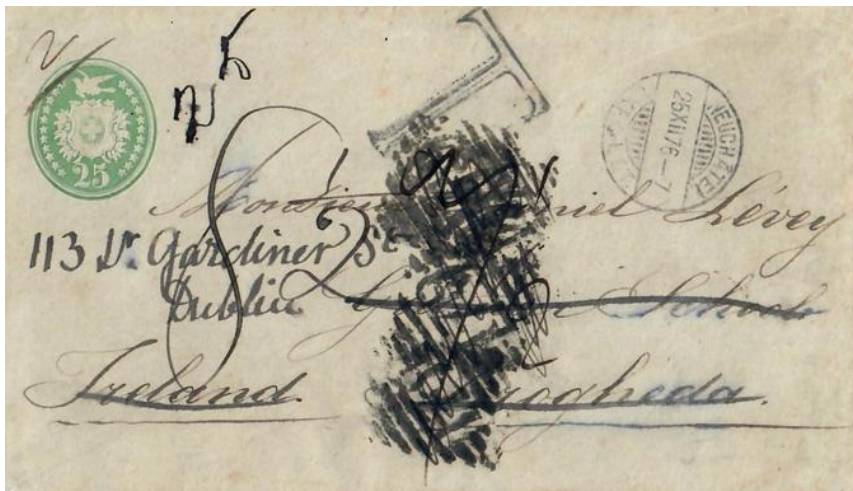 25
T
NEUCHÂTEL
25 XII 76 - 7
Monsieur Daniel Lévey
113 Lr. Gardiner St
Dublin
School
Ireland. Drogheda.